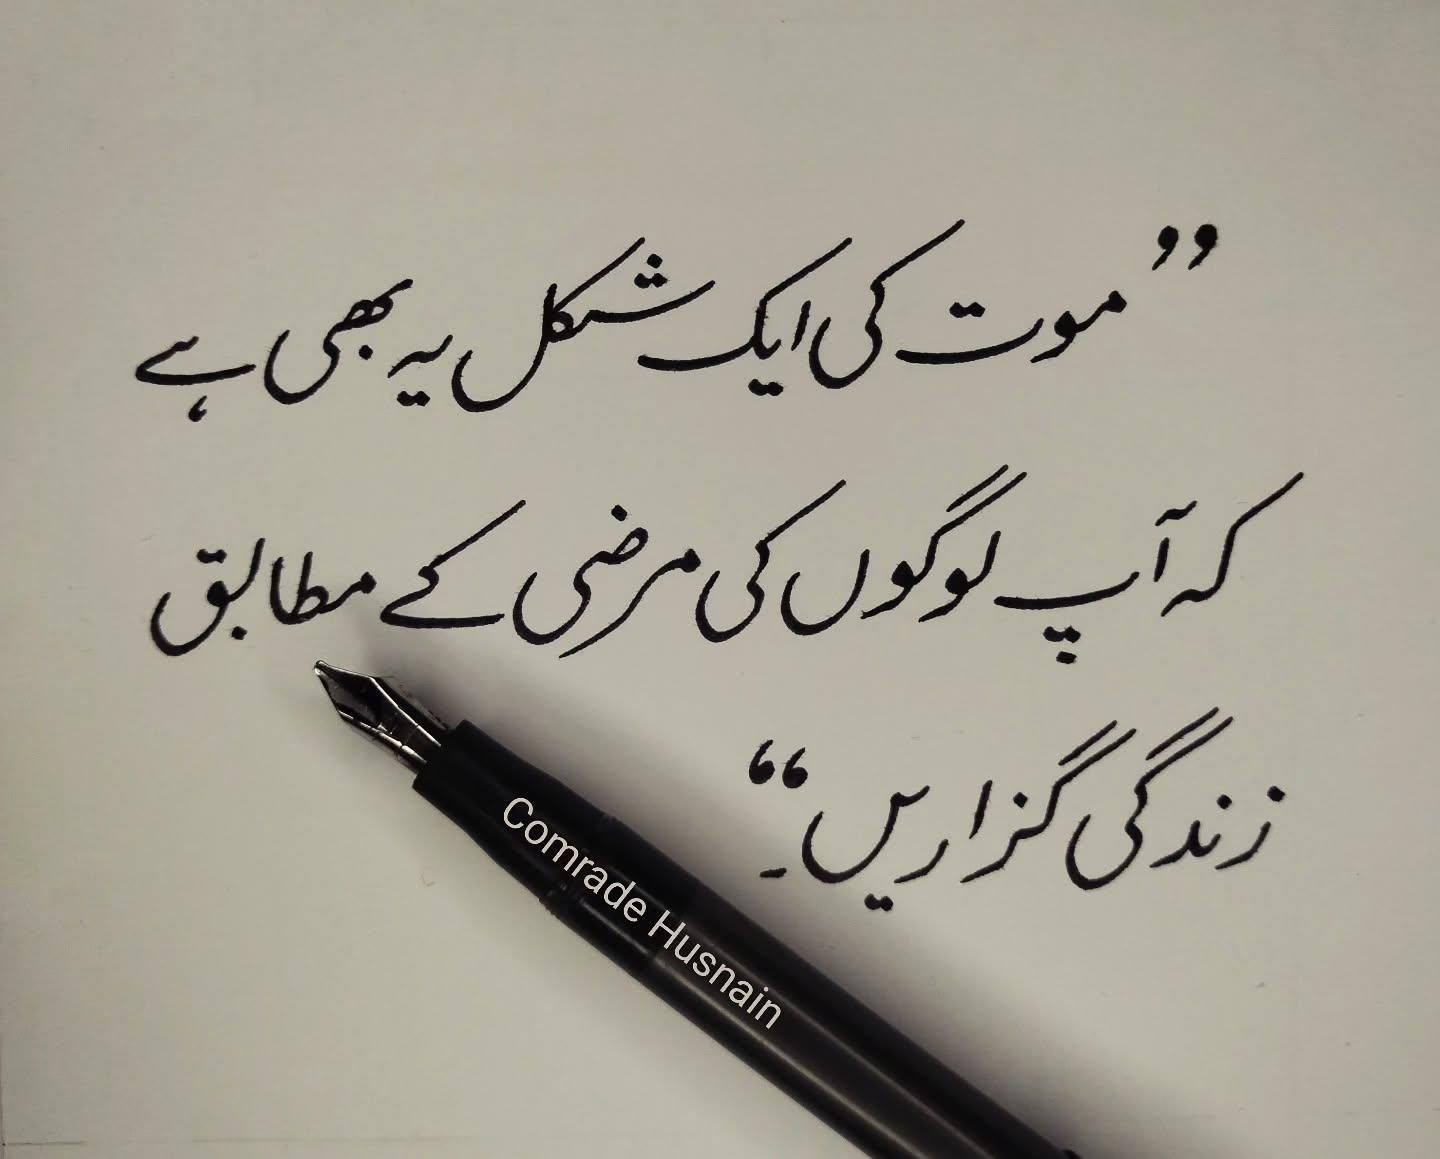 ”موت کی ایک شکل یہ بھی ہے
کہ آپ لوگوں کی مرضی کے مطابق
زندگی گزاریں۔“
Comrade Husnain